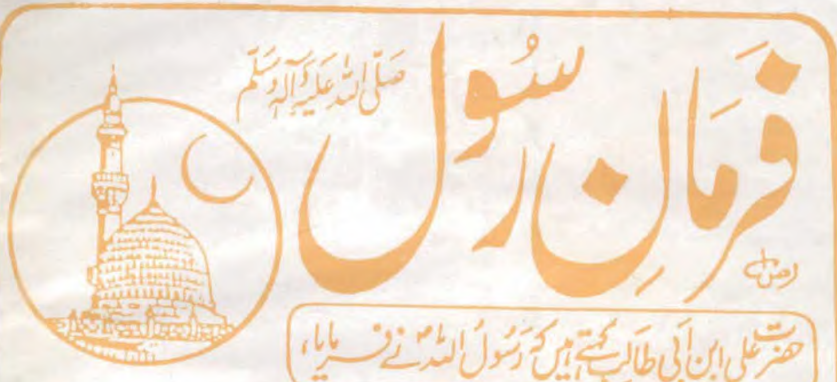 فرمانِ رسُول
صَلّی اللہ عَلَیہِ وَآلِہٖ وَسَلَّم
حضرت علی ابن ابی طالب کہتے ہیں کہ رَسُولُ اللہؐ نے فرمایا،